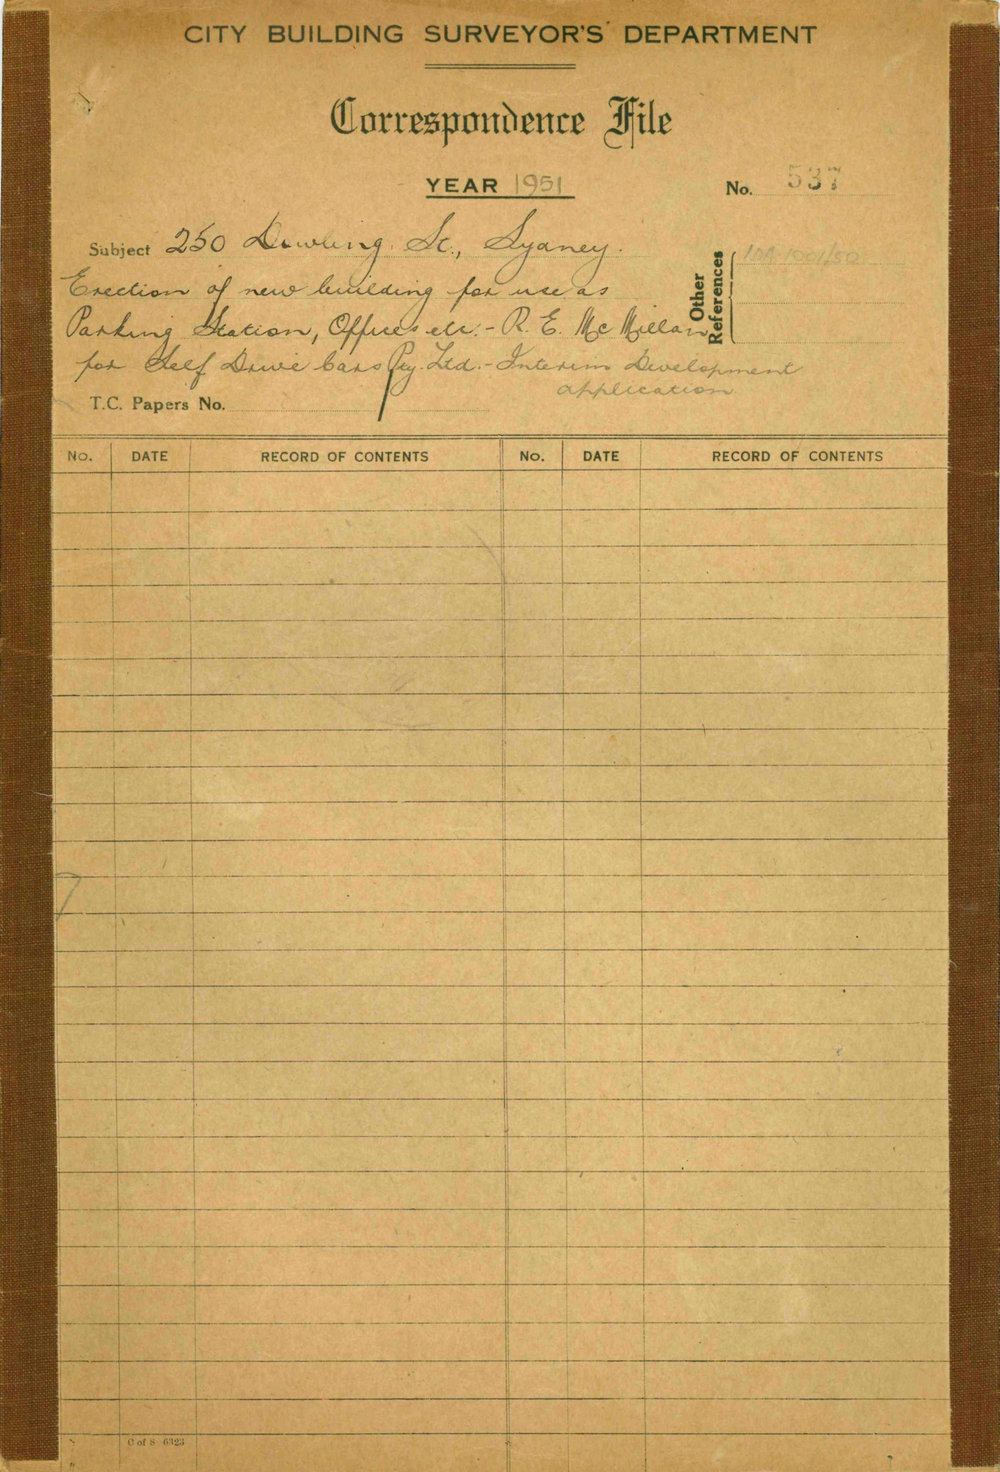 CITY BUILDING SURVEYOR'S DEPARTMENT
Correspondence File
YEAR 1951
No. 537
Subject 250 Dowling St., Sydney.
Erection of new building for use as
Parking Station, Offices etc. - R. E. McMillan
for Self Drive Cars Pty. Ltd. - Interim Development
application
Other References
IDA 1001/50
T.C. Papers No.
No. DATE RECORD OF CONTENTS No. DATE RECORD OF CONTENTS
C of S 6323